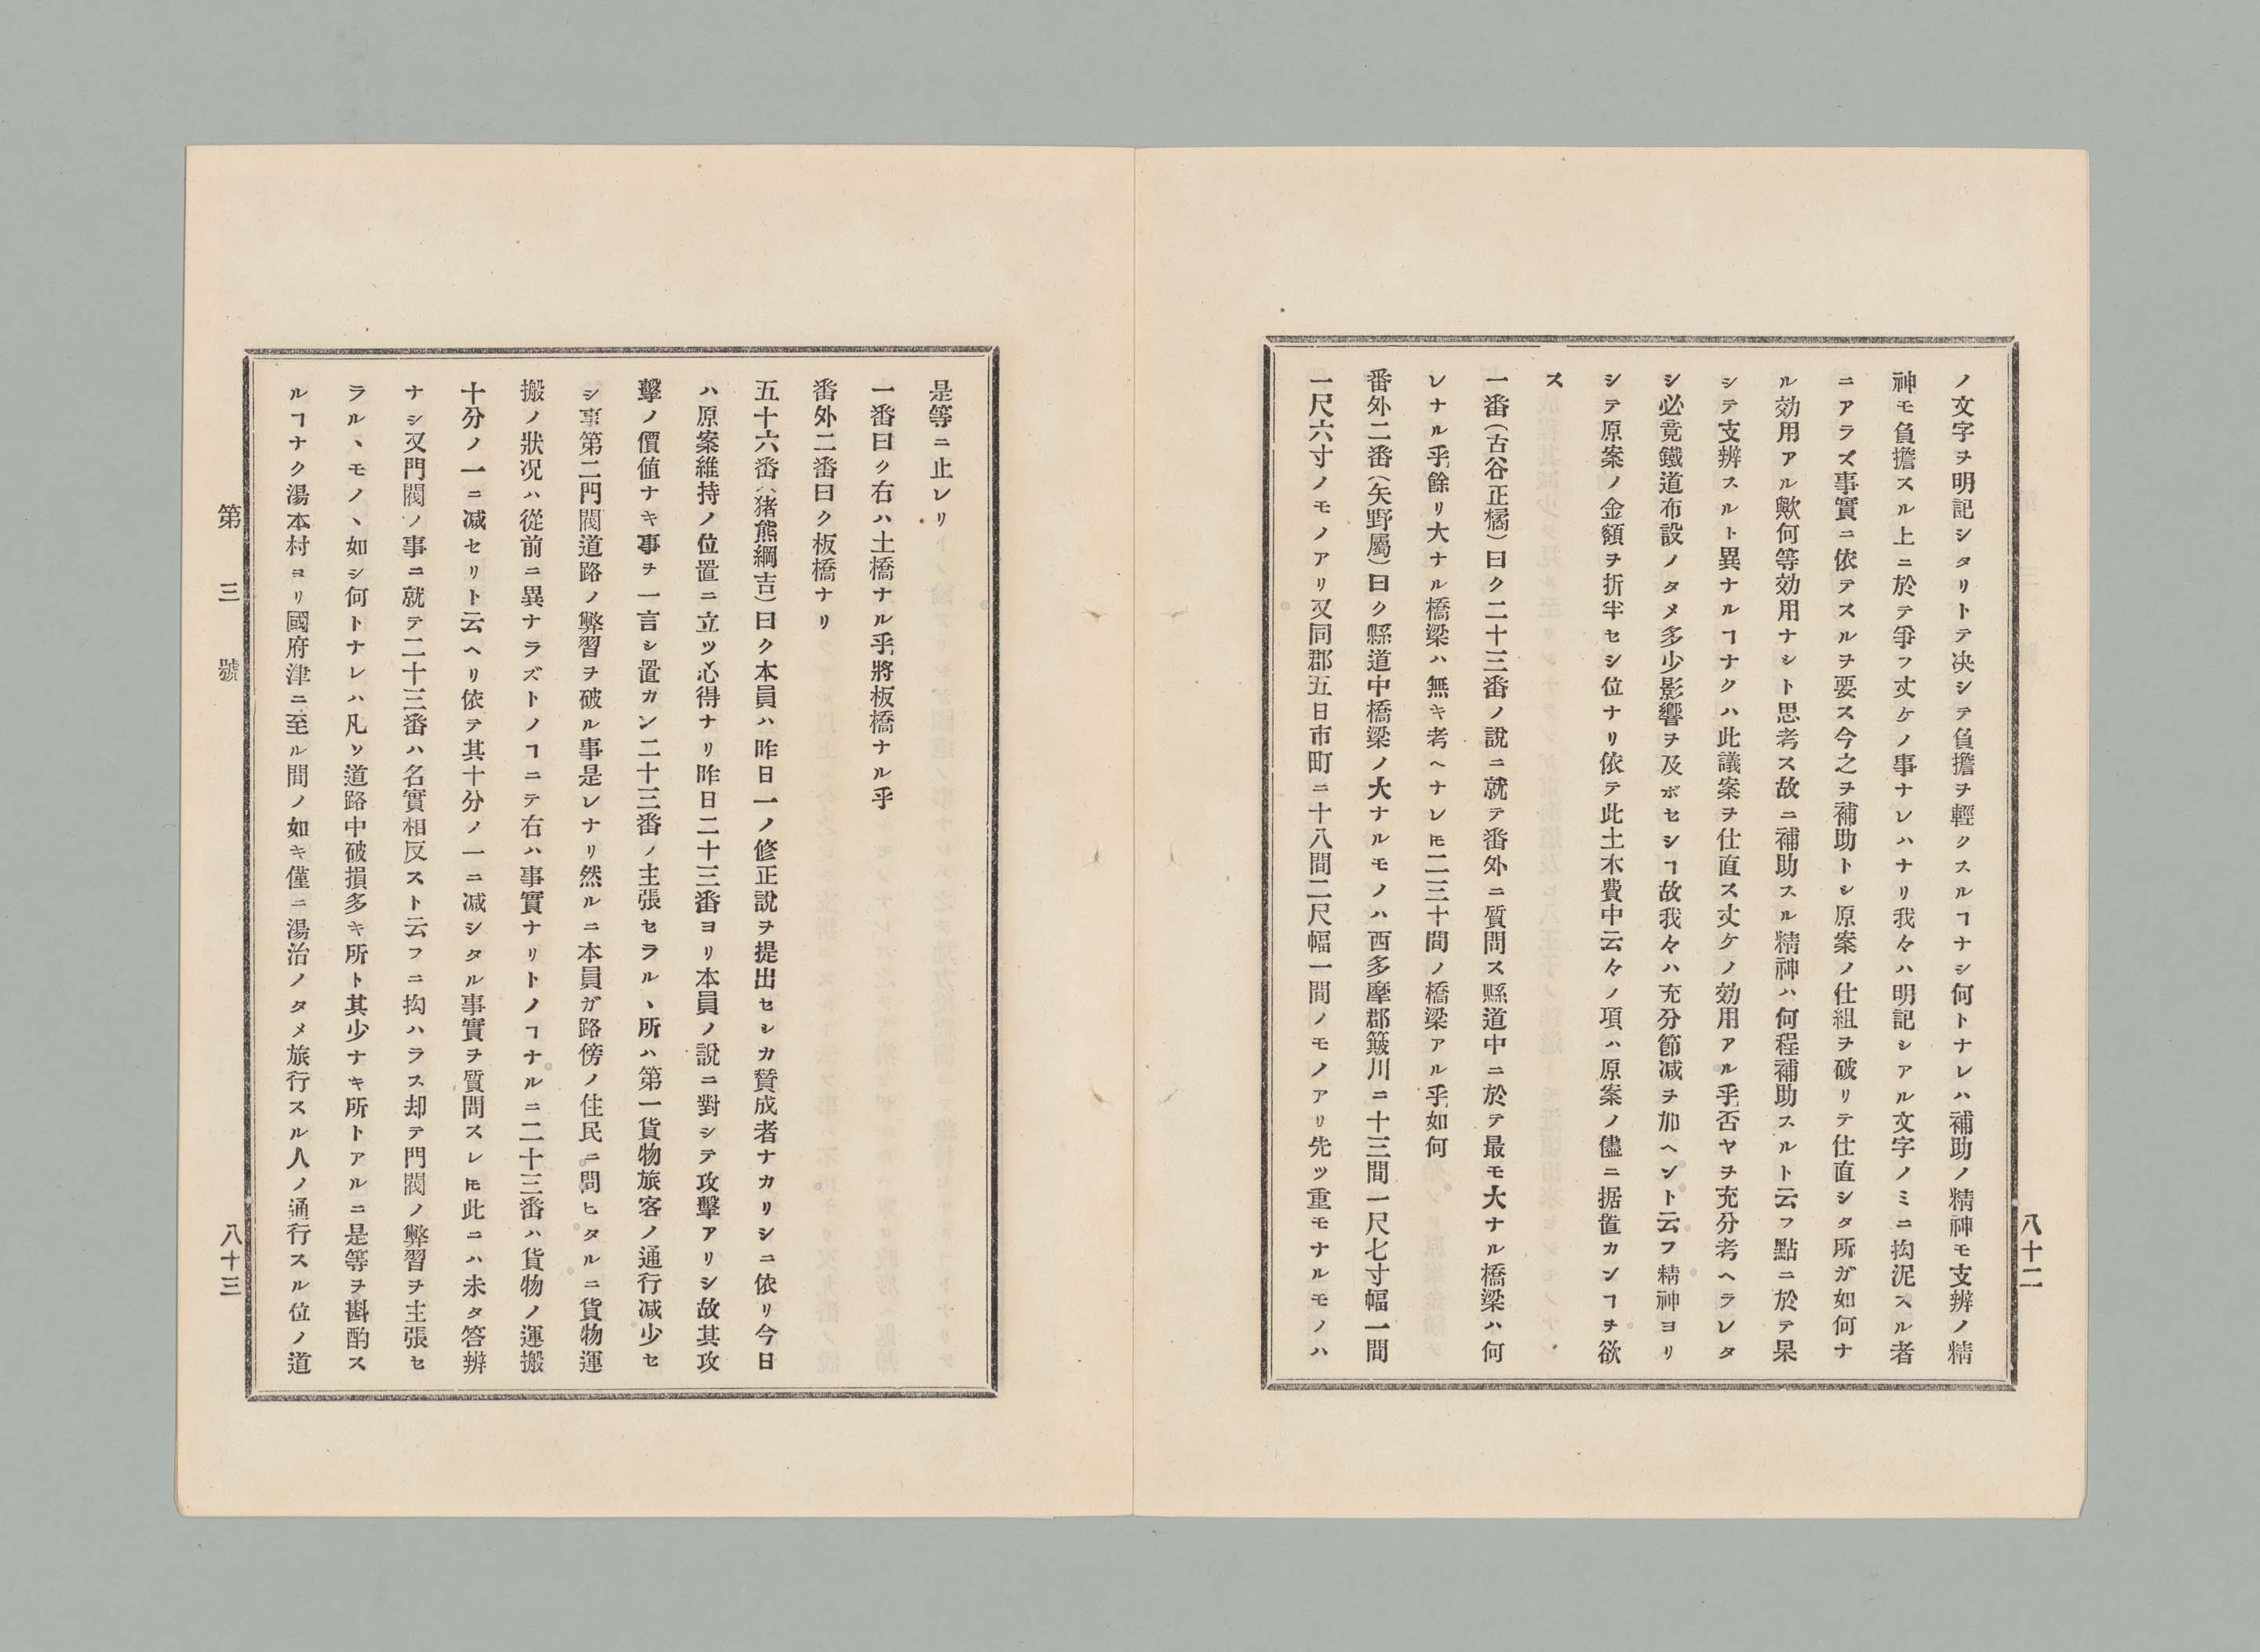 八十二
ノ文字ヲ明記シタリトテ决シテ負擔ヲ輕クスルヿナシ何トナレハ補助ノ精神モ支辨ノ精
神モ負擔スル上ニ於テ爭フ丈ケノ事ナレハナリ我々ハ明記シアル文字ノミニ拘泥スル者
ニアラズ事實ニ依テスルヲ要ス今之ヲ補助トシ原案ノ仕組ヲ破リテ仕直シタ所ガ如何ナ
ル効用アル歟何等効用ナシト思考ス故ニ補助スル精神ハ何程補助スルト云フ點ニ於テ果
シテ支辨スルト異ナルヿナクハ此議案ヲ仕直ス丈ケノ効用アル乎否ヤヲ充分考ヘラレタ
シ必竟鐵道布設ノタメ多少影響ヲ及ボセシヿ故我々ハ充分節减ヲ加ヘントト云フ精神ヨリ
シテ原案ノ金額ヲ折半セシ位ナリ依テ此土木費中云々ノ項ハ原案ノ儘ニ据置カンヿヲ欲
ス
一番（古谷正橘）曰ク二十三番ノ說ニ就テ番外ニ質問ス縣道中ニ於テ最モ大ナル橋梁ハ何
レナル乎餘リ大ナル橋梁ハ無キ考ヘナレㇳモ二三十間ノ橋梁アル乎如何
番外二番（矢野屬）曰ク縣道中橋梁ノ大ナルモノハ西多摩郡簸川ニ十三間一尺七寸幅一間
一尺六寸ノモノアリ又同郡五日市町ニ十八間二尺幅一間ノモノアリ先ツ重モナルモノハ
是等ニ止レリ
一番曰ク右ハ土橋ナル乎將板橋ナル乎
番外二番曰ク板橋ナリ
五十六番（猪熊綱吉）曰ク本員ハ昨日一ノ修正說ヲ提出セシカ賛成者ナカリシニ依リ今日
ハ原案維持ノ位置ニ立ツ心得ナリ昨日二十三番ヨリ本員ノ說ニ對シテ攻擊アリシ故其攻
擊ノ價値ナキ事ヲ一言シ置カン二十三番ノ主張セラル丶所ハ第一貨物旅客ノ通行减少セ
シ事第二門閥道路ノ弊習ヲ破ル事是レナリ然ルニ本員ガ路傍ノ住民ニ問ヒタルニ貨物運
搬ノ狀况ハ從前ニ異ナラズトノヿニテ右ハ事實ナリトノヿナルニ二十三番ハ貨物ノ運搬
十分ノ一ニ减セリト云ヘリ依テ其十分ノ一ニ减シタル事實ヲ質問スレㇳモ此ニハ未タ答辨
ナシ又門閥ノ事ニ就テ二十三番ハ名實相反スト云フニ拘ハラス却テ門閥ノ弊習ヲ主張セ
ラル丶モノ丶如シ何トナレハ凡ソ道路中破損多キ所ト其少ナキ所トアルニ是等ヲ斟酌ス
ルヿナク湯本村ヨリ國府津ニ至ル間ノ如キ僅ニ湯治ノタメ旅行スル人ノ通行スル位ノ道
第三號
八十三